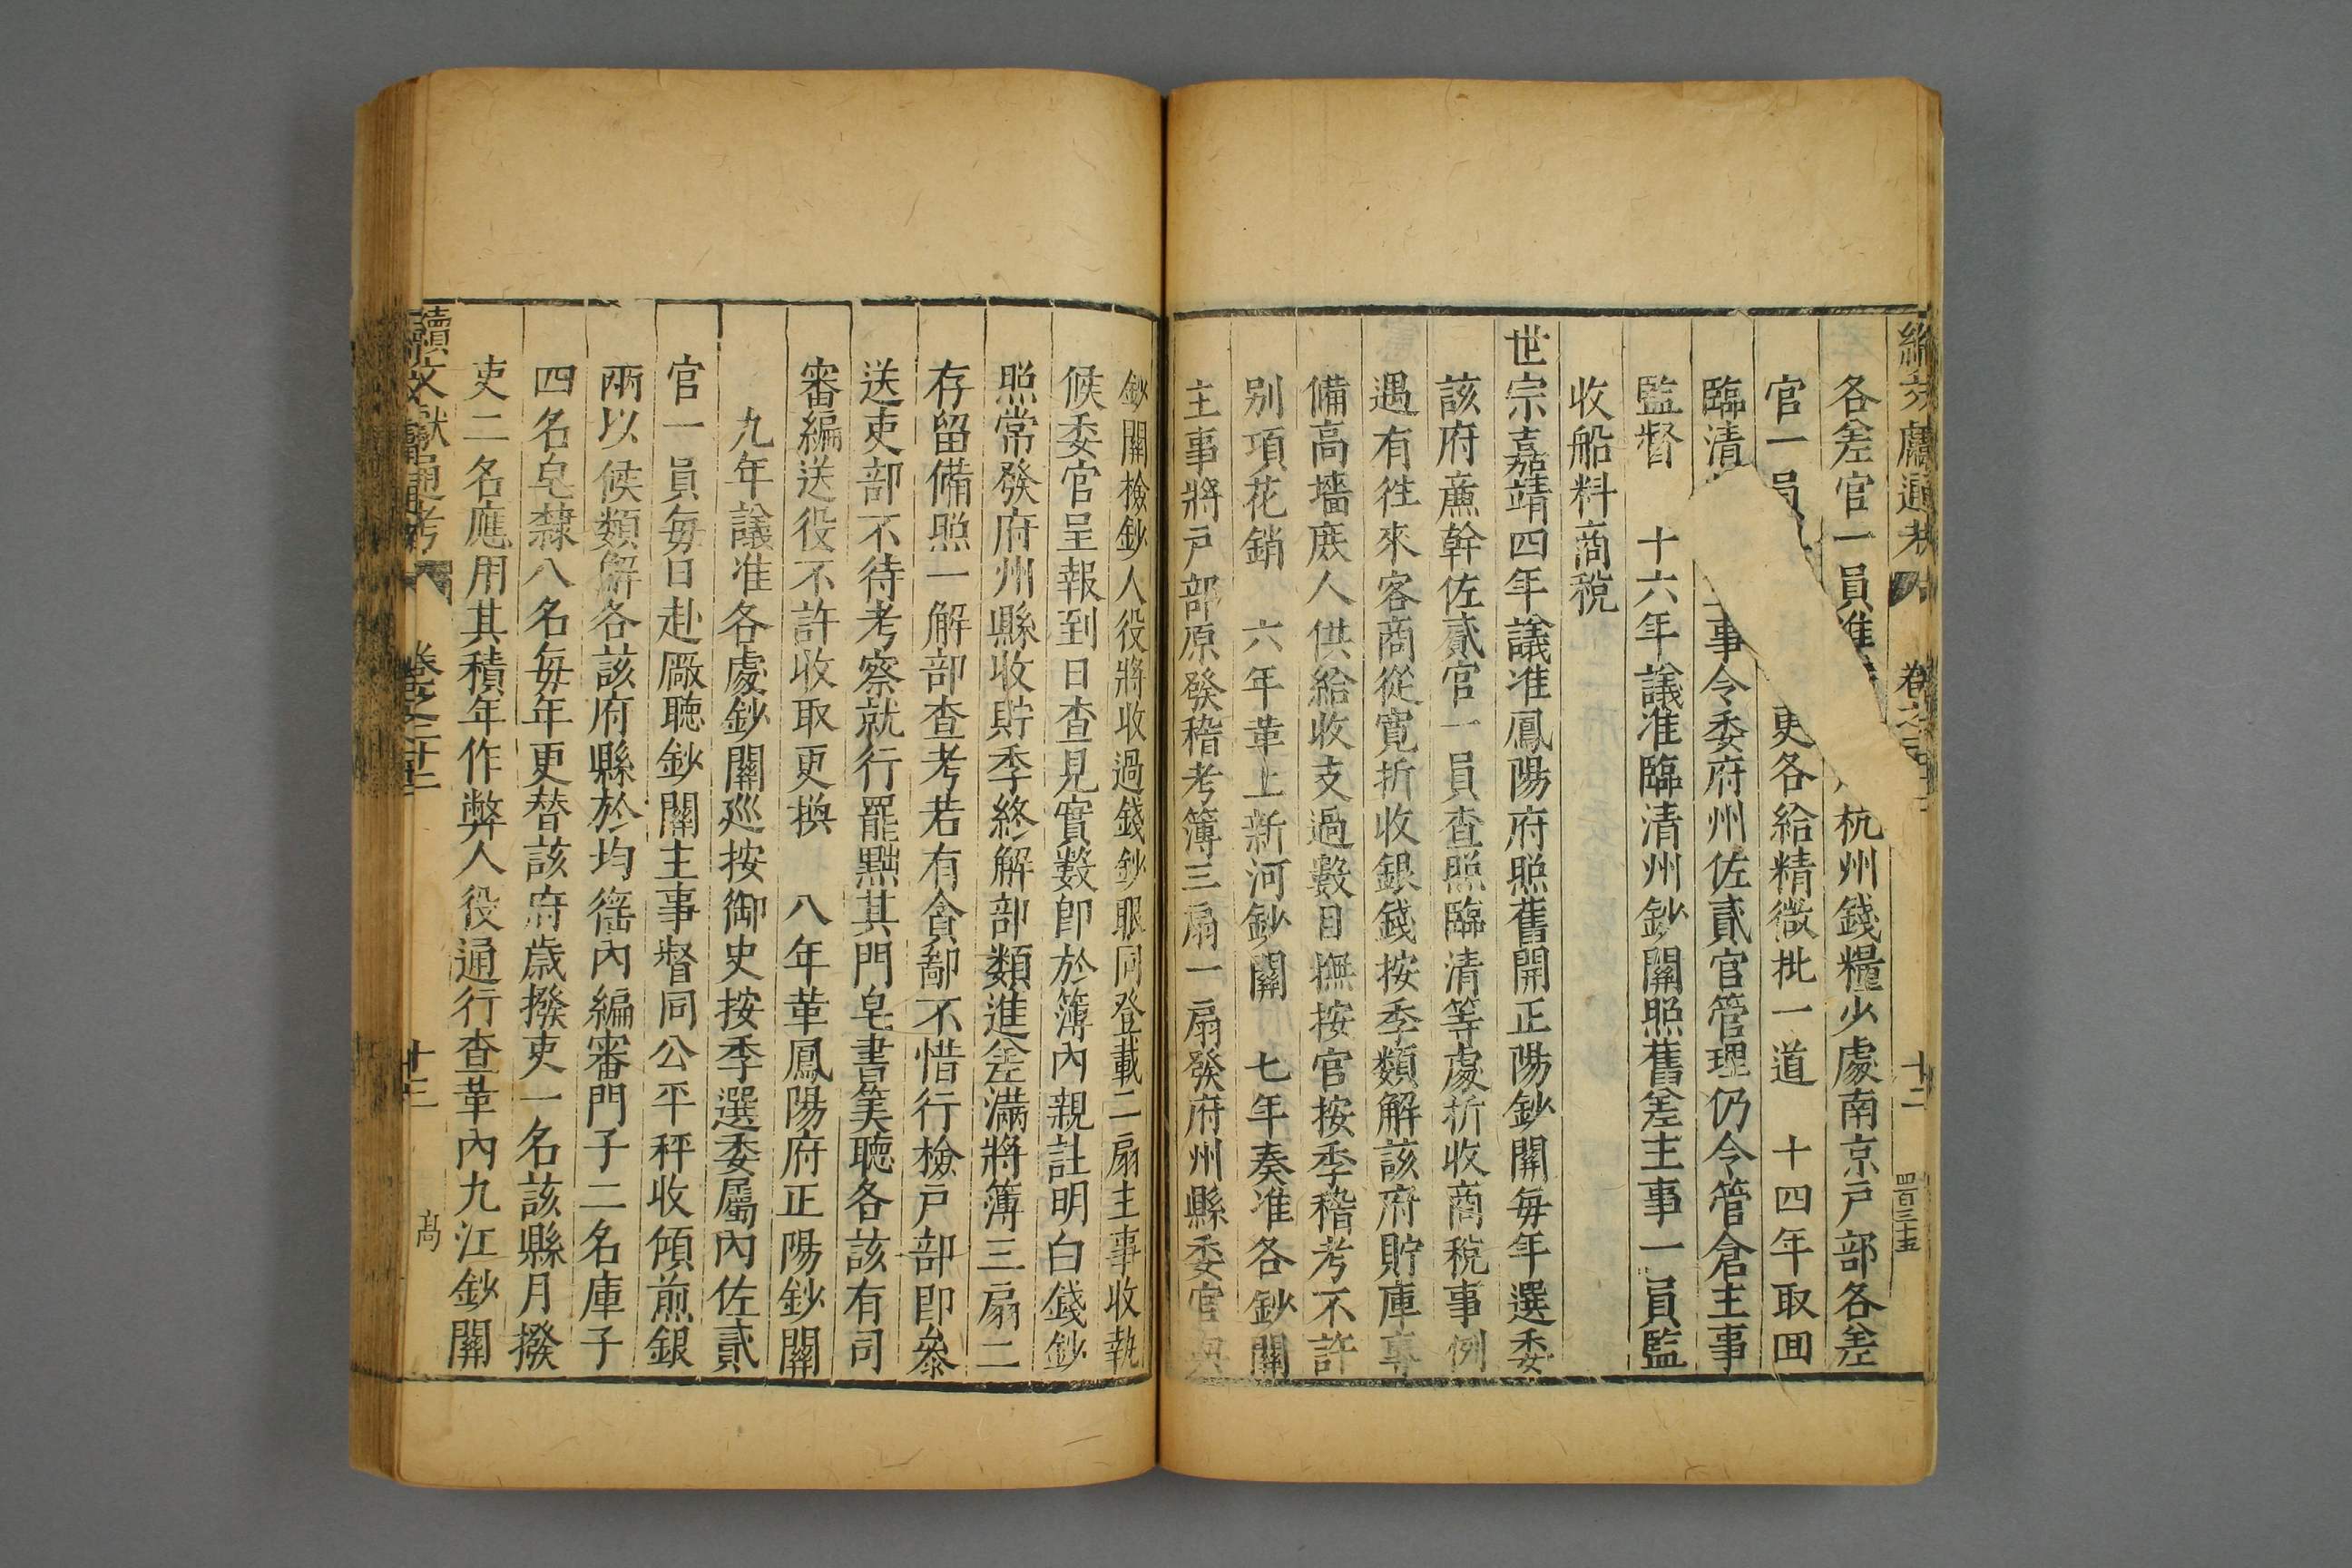 續文獻通考 卷之二十 十二 四百三十五
各差官一員准 杭州錢糧少處南京戸部各差
官一員 吏各給精微批一道 十四年取囬
臨清 事令委府州佐貳官管理仍令管倉主事
監督 十六年議准臨清州鈔關照舊差主事一員監
收船料商稅
世宗嘉靖四年議准鳳陽府照舊開正陽鈔關每年選委
該府廉幹佐貳官一員查照臨清等處折收商稅事例
遇有徃來客商從寬折收銀錢按季類解該府貯庫專
備高墻庶人供給收支過數目撫按官按季稽考不許
别項花銷 六年革上新河鈔關 七年奏准各鈔關
主事將戸部原發稽考簿三扇一扇發府州縣委官與
鈔關檢鈔人役將收過錢鈔眼同登載二扇主事收執
候委官呈報到日查見實數卽於簿內親註明白錢鈔
照常發府州縣收貯季終解部類進差滿將簿三扇二
存留備照一解部查考若有貪鄙不惜行檢戸部卽叅
送吏部不待考察就行罷黜其門皂書筭聽各該有司
審編送役不許收取更換 八年革鳳陽府正陽鈔關
九年議准各處鈔關廵按御史按季選委屬內佐貳
官一員每日赴厫聽鈔關主事督同公平秤收傾煎銀
兩以候類解各該府縣於均徭內編審門子二名庫子
四名皂隸八名每年更替該府歲撥吏一名該縣月撥
吏二名應用其積年作弊人役通行查革內九江鈔關
續文獻通考 卷之二十 十三 髙